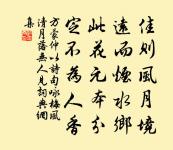 佳則風月境
遠而煙水鄉
此花元本分
定不為人香
方蒙仲以詩句咏梅風
清月落無人見詞典網
集